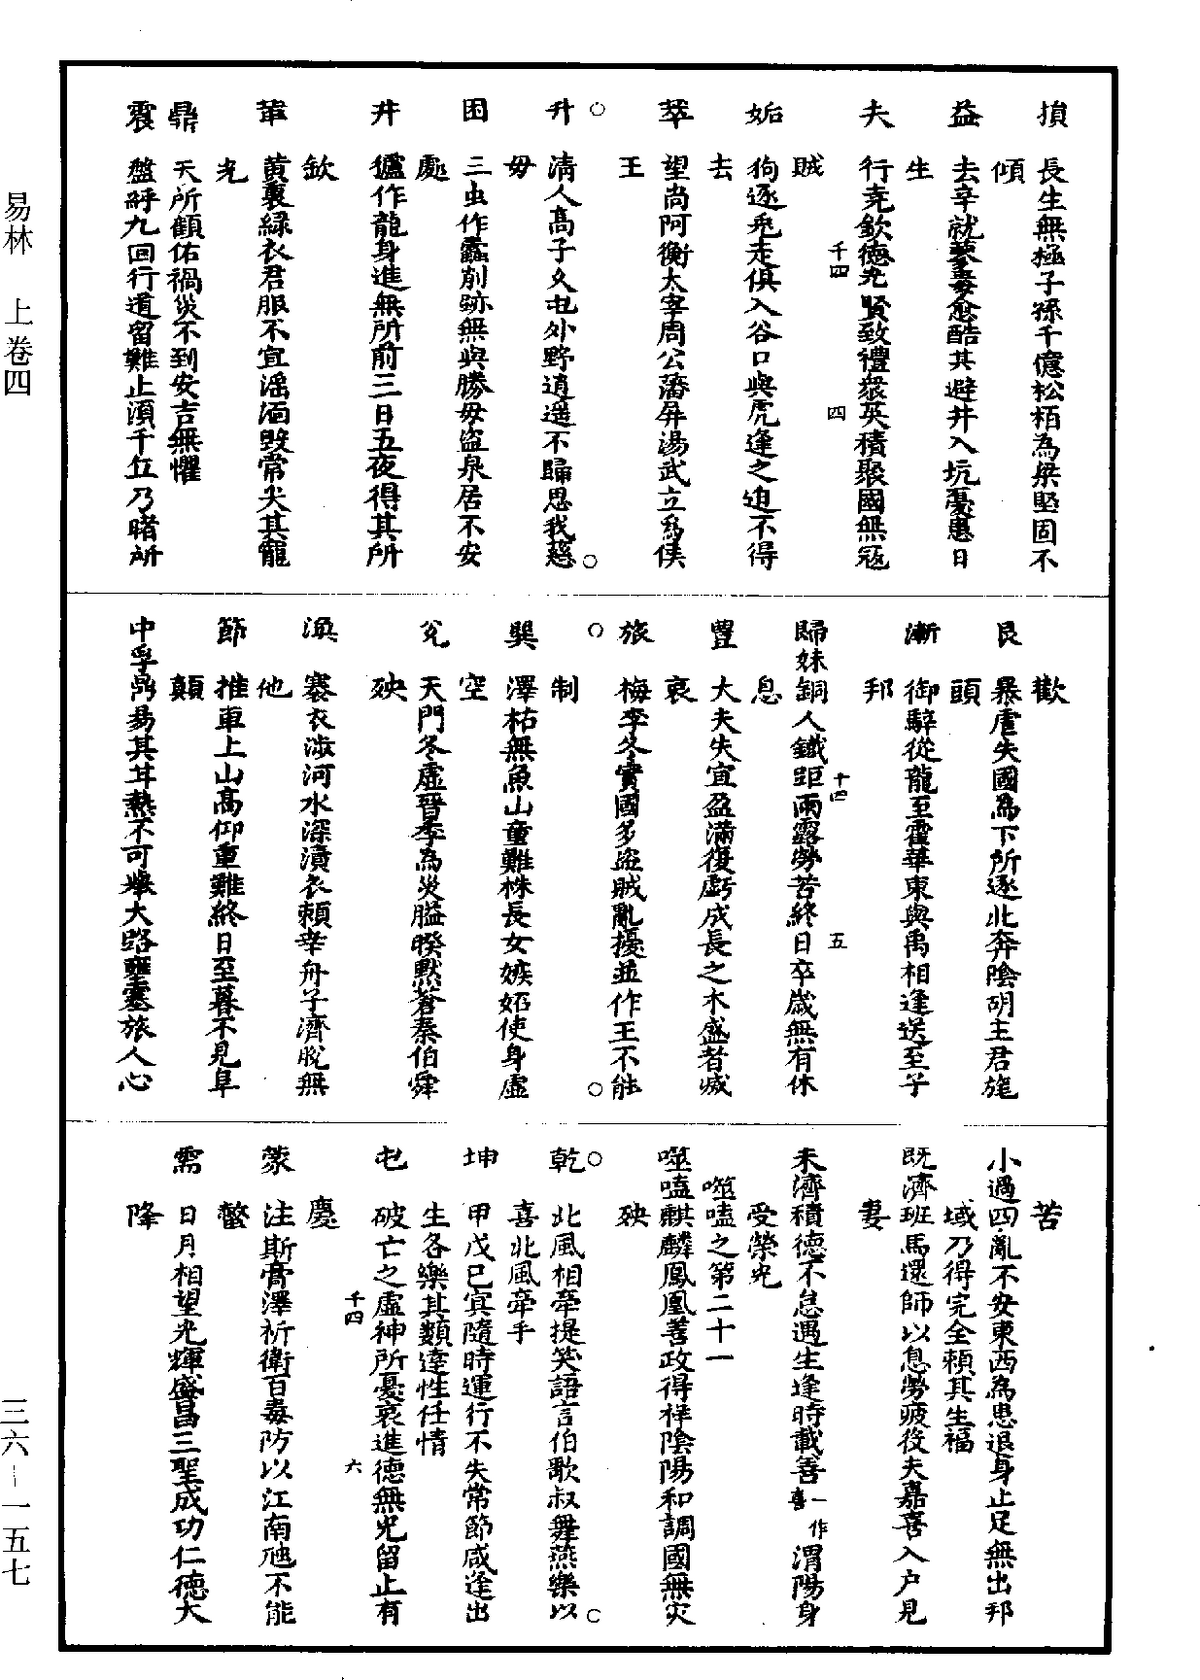 損　長生無極子孫千億松栢為梁堅固不
傾
益　去辛就蓼毒愈酷其避井入坑憂患日
生
夬　行尭欽德兊賢致禮衆英積聚國無冦
賊
姤　狗逐兎走俱入谷口與虎逢之迫不得
去
萃　望尚阿衡太宰周公藩屏湯武立為侯
王
升　清人髙子久屯外野逍遥不歸思我慈
母
困　三虫作蠱削跡無與勝母盜泉居不安
處
井　作龍身進無所前三日五夜得其所
欽
革　黄裏緑衣君服不宜滛湎毁常失其寵
光
鼎　天所顧佑禍災不到安吉無懼
震　盤紆九回行道留難止須千仭乃睹所
歡
艮　暴虐失國為下所逐北奔陰胡主君旄
頭
漸　御騂從龍至霍華東與禹相逢送至于
邦
歸妹　銅人鐵距雨露勞苦終日卒歳無有休
息
豐　大夫失宜盈滿復虧成長之木盛者㓕
衰
旅　梅李冬實國多盗賊亂擾並作王不能
制
巽　澤枯無魚山童難株長女嫉妬使身虚
空
兊　天門冬虚晉季為災䐉暌黙蒼秦伯舜
殃
渙　褰衣涉河水深漬衣頼幸舟子濟脱無
他
節　推車上山髙仰重難終日至暮不見阜
顛
中孚　鼎易其耳熱不可舉大路壅塞旅人心
苦
小過　四亂不安東西為患退身止足無出邦
域乃得完全頼其生福
既濟　班馬還師以息勞疲役夫嘉喜入户見
妻
未濟　積德不怠遇主逢時載善一作喜渭陽身
受榮光
噬嗑之第二十一
噬嗑　麒麟鳳凰善政得祥陰陽和調國無灾
殃
乾　北風相牽提笑語言伯歌叔舞燕樂以
喜北風牽手
坤　甲戊己寅隨時運行不失常節咸逢出
生各樂其類逹性任情
屯　破亡之虚神所憂哀進德無光留止有
慶
蒙　注斯膏澤祈衛百毒防以江南虺不能
螫
需　日月相望光輝盛昌三聖成功仁德大
隆
易林　上卷四
三六—一五七